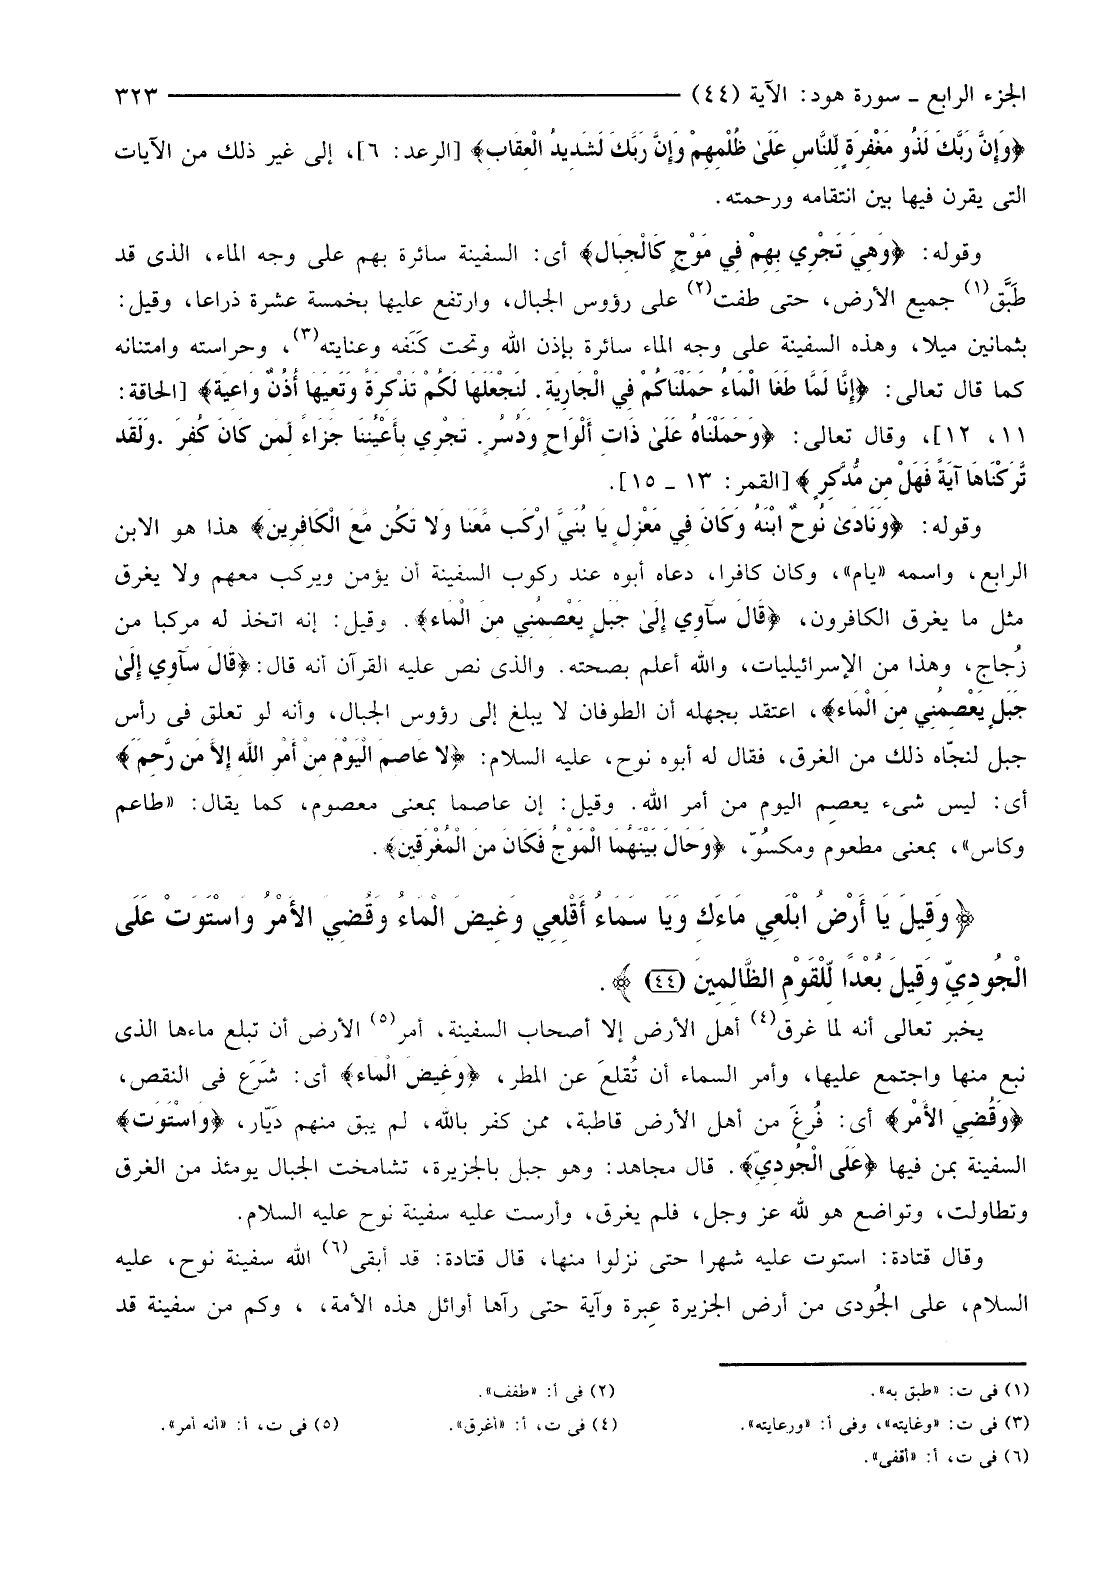 الجزء الرابع ـ سورة هود: الآية (٤٤) ٣٢٣
﴿وَإِنَّ رَبَّكَ لَذُو مَغْفِرَةٍ لِّلنَّاسِ عَلَىٰ ظُلْمِهِمْ وَإِنَّ رَبَّكَ لَشَدِيدُ الْعِقَابِ﴾ [الرعد: ٦]، إلى غير ذلك من الآيات
التى يقرن فيها بين انتقامه ورحمته.
وقوله: ﴿وَهِيَ تَجْرِي بِهِمْ فِي مَوْجٍ كَالْجِبَالِ﴾ أى: السفينة سائرة بهم على وجه الماء، الذى قد
طَبَّق(١) جميع الأرض، حتى طفت(٢) على رؤوس الجبال، وارتفع عليها بخمسة عشرة ذراعا، وقيل:
بثمانين ميلا، وهذه السفينة على وجه الماء سائرة بإذن الله وتحت كَنَفه وعنايته(٣)، وحراسته وامتنانه
كما قال تعالى: ﴿إِنَّا لَمَّا طَغَا الْمَاءُ حَمَلْنَاكُمْ فِي الْجَارِيَةِ. لِنَجْعَلَهَا لَكُمْ تَذْكِرَةً وَتَعِيَهَا أُذُنٌ وَاعِيَةٌ﴾ [الحاقة:
١١، ١٢]، وقال تعالى: ﴿وَحَمَلْنَاهُ عَلَىٰ ذَاتِ أَلْوَاحٍ وَدُسُرٍ. تَجْرِي بِأَعْيُنِنَا جَزَاءً لِّمَن كَانَ كُفِرَ .وَلَقَد
تَّرَكْنَاهَا آيَةً فَهَلْ مِن مُّدَّكِرٍ﴾ [القمر: ١٣ ـ ١٥].
وقوله: ﴿وَنَادَىٰ نُوحٌ ابْنَهُ وَكَانَ فِي مَعْزِلٍ يَا بُنَيَّ ارْكَب مَّعَنَا وَلَا تَكُن مَّعَ الْكَافِرِينَ﴾ هذا هو الابن
الرابع، واسمه «يام»، وكان كافرا، دعاه أبوه عند ركوب السفينة أن يؤمن ويركب معهم ولا يغرق
مثل ما يغرق الكافرون، ﴿قَالَ سَآوِي إِلَىٰ جَبَلٍ يَعْصِمُنِي مِنَ الْمَاءِ﴾. وقيل: إنه اتخذ له مركبا من
زُجاج، وهذا من الإسرائيليات، والله أعلم بصحته. والذى نص عليه القرآن أنه قال:﴿قَالَ سَآوِي إِلَىٰ
جَبَلٍ يَعْصِمُنِي مِنَ الْمَاءِ﴾، اعتقد بجهله أن الطوفان لا يبلغ إلى رؤوس الجبال، وأنه لو تعلق فى رأس
جبل لنجّاه ذلك من الغرق، فقال له أبوه نوح، عليه السلام: ﴿لا عَاصِمَ الْيَوْمَ مِنْ أَمْرِ اللَّهِ إِلاَّ مَن رَّحِمَ﴾
أى: ليس شىء يعصِم اليوم من أمر الله. وقيل: إن عاصما بمعنى معصوم، كما يقال: «طاعم
وكاس»، بمعنى مطعوم ومكسُوّ، ﴿وَحَالَ بَيْنَهُمَا الْمَوْجُ فَكَانَ مِنَ الْمُغْرَقِينَ﴾.
﴿وَقِيلَ يَا أَرْضُ ابْلَعِي مَاءَكِ وَيَا سَمَاءُ أَقْلِعِي وَغِيضَ الْمَاءُ وَقُضِيَ الأَمْرُ وَاسْتَوَتْ عَلَى
الْجُودِيِّ وَقِيلَ بُعْدًا لِّلْقَوْمِ الظَّالِمِينَ (٤٤)﴾.
يخبر تعالى أنه لما غرق(٤) أهل الأرض إلا أصحاب السفينة، أمر(٥) الأرض أن تبلع ماءها الذى
نبع منها واجتمع عليها، وأمر السماء أن تُقلعَ عن المطر، ﴿وَغِيضَ الْمَاءُ﴾ أى: شَرَع فى النقص،
﴿وَقُضِيَ الأَمْرُ﴾ أى: فُرغَ من أهل الأرض قاطبة، ممن كفر بالله، لم يبق منهم دَيّار، ﴿وَاسْتَوَتْ﴾
السفينة بمن فيها ﴿عَلَى الْجُودِيِّ﴾. قال مجاهد: وهو جبل بالجزيرة، تشامخت الجبال يومئذ من الغرق
وتطاولت، وتواضع هو لله عز وجل، فلم يغرق، وأرست عليه سفينة نوح عليه السلام.
وقال قتادة: استوت عليه شهرا حتى نزلوا منها، قال قتادة: قد أبقى(٦) الله سفينة نوح، عليه
السلام، على الجُودى من أرض الجزيرة عِبرة وآية حتى رآها أوائل هذه الأمة، ، وكم من سفينة قد
(١) فى ت: «طبق به». (٢) فى أ: «طفف».
(٣) فى ت: «وغايته»، وفى أ: «ورعايته». (٤) فى ت، أ: «أغرق». (٥) فى ت، أ: «أنه أمر».
(٦) فى ت، أ: «أقفى».